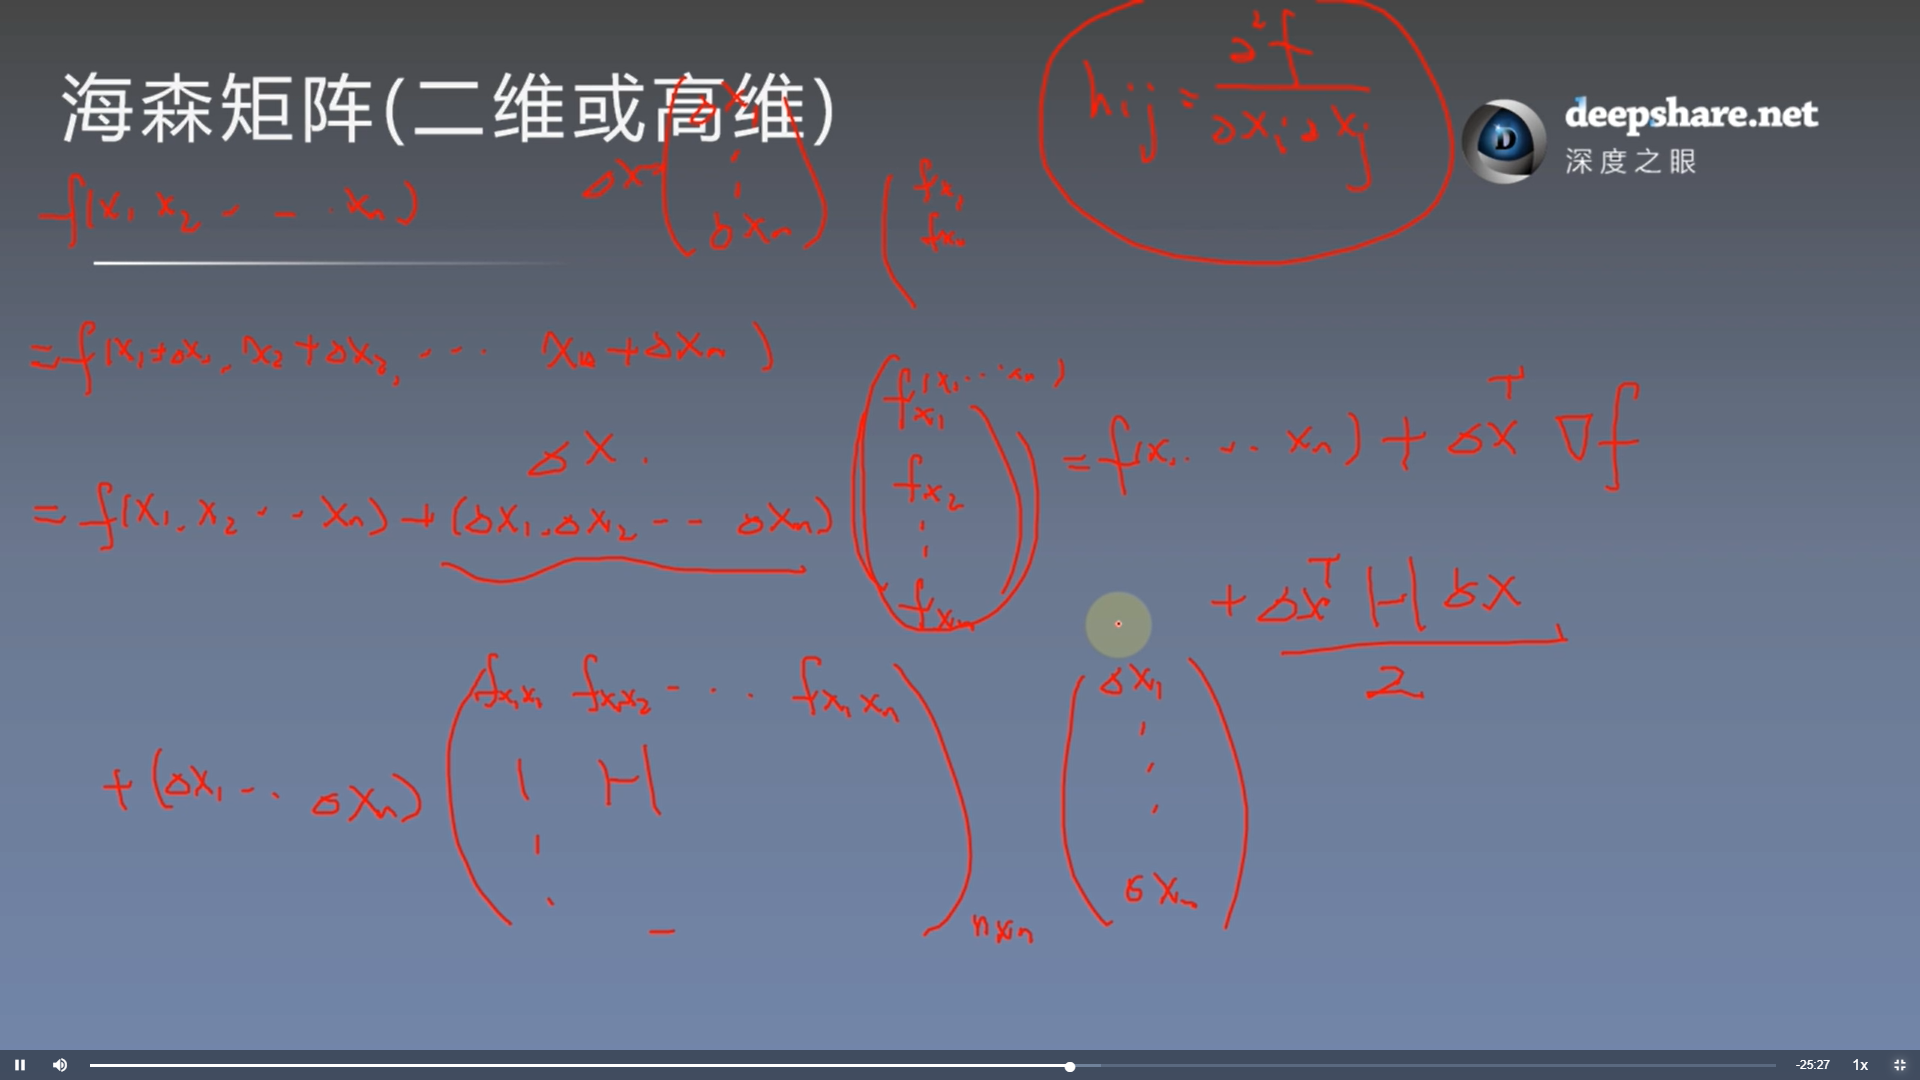 海森矩阵(二维或高维)
deepshare.net
深度之眼
hij = ∂²f / ∂xi∂xj
f(x₁ x₂ - - · xₙ)
Δx = (Δx₁ ⋮ Δxₙ)
(fx₁ fxₙ
= f(x₁+Δx₁, x₂+Δx₂, ··· xₙ+Δxₙ)
Δx ·
= f(x₁, x₂ ··· xₙ) + (Δx₁, Δx₂ -- Δxₙ) (fx₁(x₁···xₙ) fx₂ ⋮ fxₙ)
= f(x₁ ··· xₙ) + Δxᵀ ∇f
+ Δxᵀ H Δx / 2
+ (Δx₁ ··· Δxₙ) (fx₁x₁ fx₁x₂ - ··· fx₁xₙ H)n×n (Δx₁ ⋮ Δxₙ)
-25:27 1x